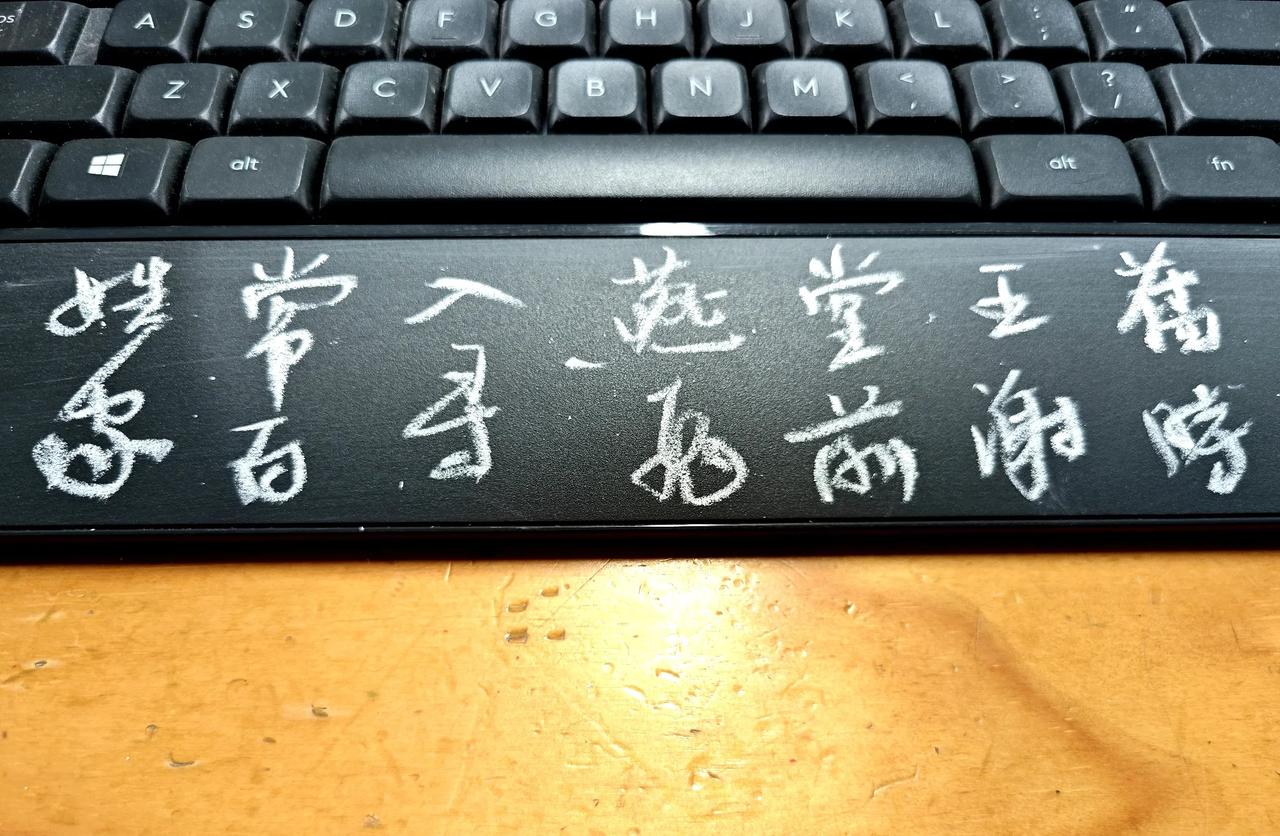 A S D F G H J K L : ; " '
Z X C V B N M < , > . ? /
alt alt fn
舊時
王謝
堂前
燕飛
入尋
常百
姓家